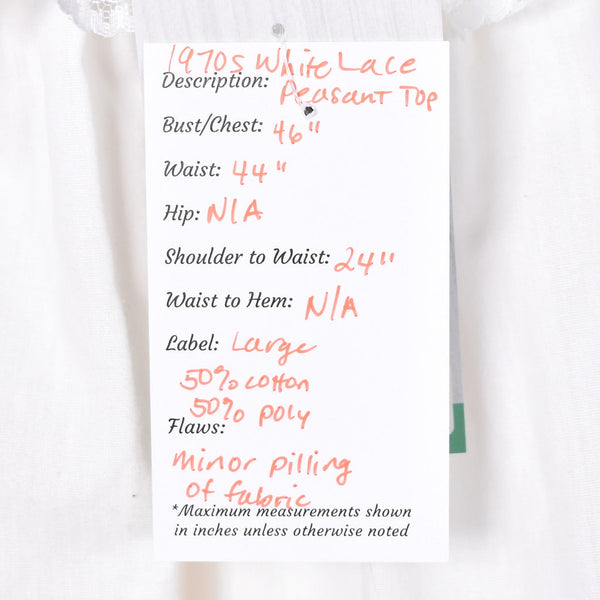 1970s White Lace
Description: Peasant Top
Bust/Chest: 46"
Waist: 44"
Hip: N/A
Shoulder to Waist: 24"
Waist to Hem: N/A
Label: Large
50% cotton
50% poly
Flaws:
minor pilling
of fabric
*Maximum measurements shown
in inches unless otherwise noted